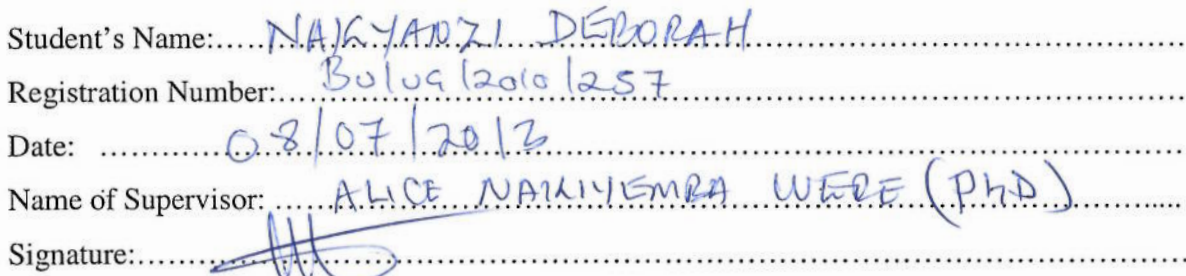 Student's Name:.....NAKYANZI DEBORAH
Registration Number:....BU/UG/2010/257
Date: ............08/07/2013
Name of Supervisor: ......ALICE NAKIYEMBA WERE (PhD)
Signature:......